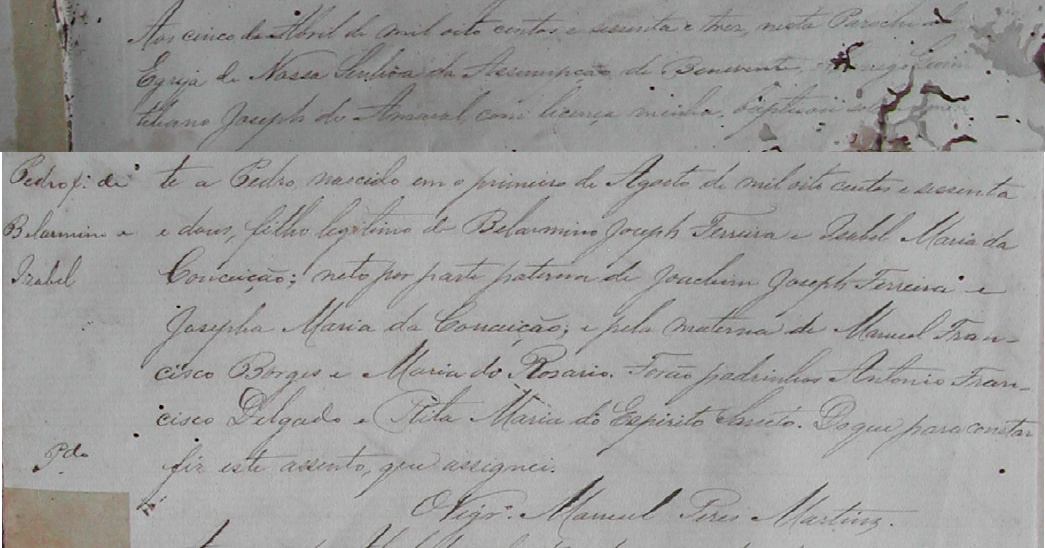 Aos cinco de Abril de mil oito centos e sessenta e tres, nesta Parochial
Egreja de Nossa Senhora da Assumpção de Benevente,
Joseph do Amaral com licença minha, baptisou
Pedro f.º de
te a Pedro, nascido em o primeiro de Agosto de mil oito centos e sessenta
Belarmino e
e dous, filho legitimo de Belarmino Joseph Ferreira e Isabel Maria da
Izabel
Conceição; neto por parte paterna de Joachim Joseph Ferreira e
Josepha Maria da Conceição; e pela materna de Manoel Fran-
cisco Borges e Maria do Rosario. Forão padrinhos Antonio Fran-
cisco Delgado e Rita Maria do Espirito Sancto. Do que para constar
P.do
fiz este assento, que assignei.
O Vigr.º Manoel Pires Martins.